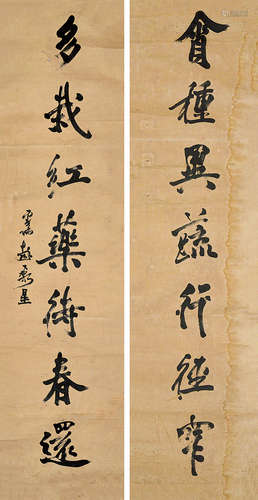 貪種異蔬行徑窄
多栽紅藥待春還